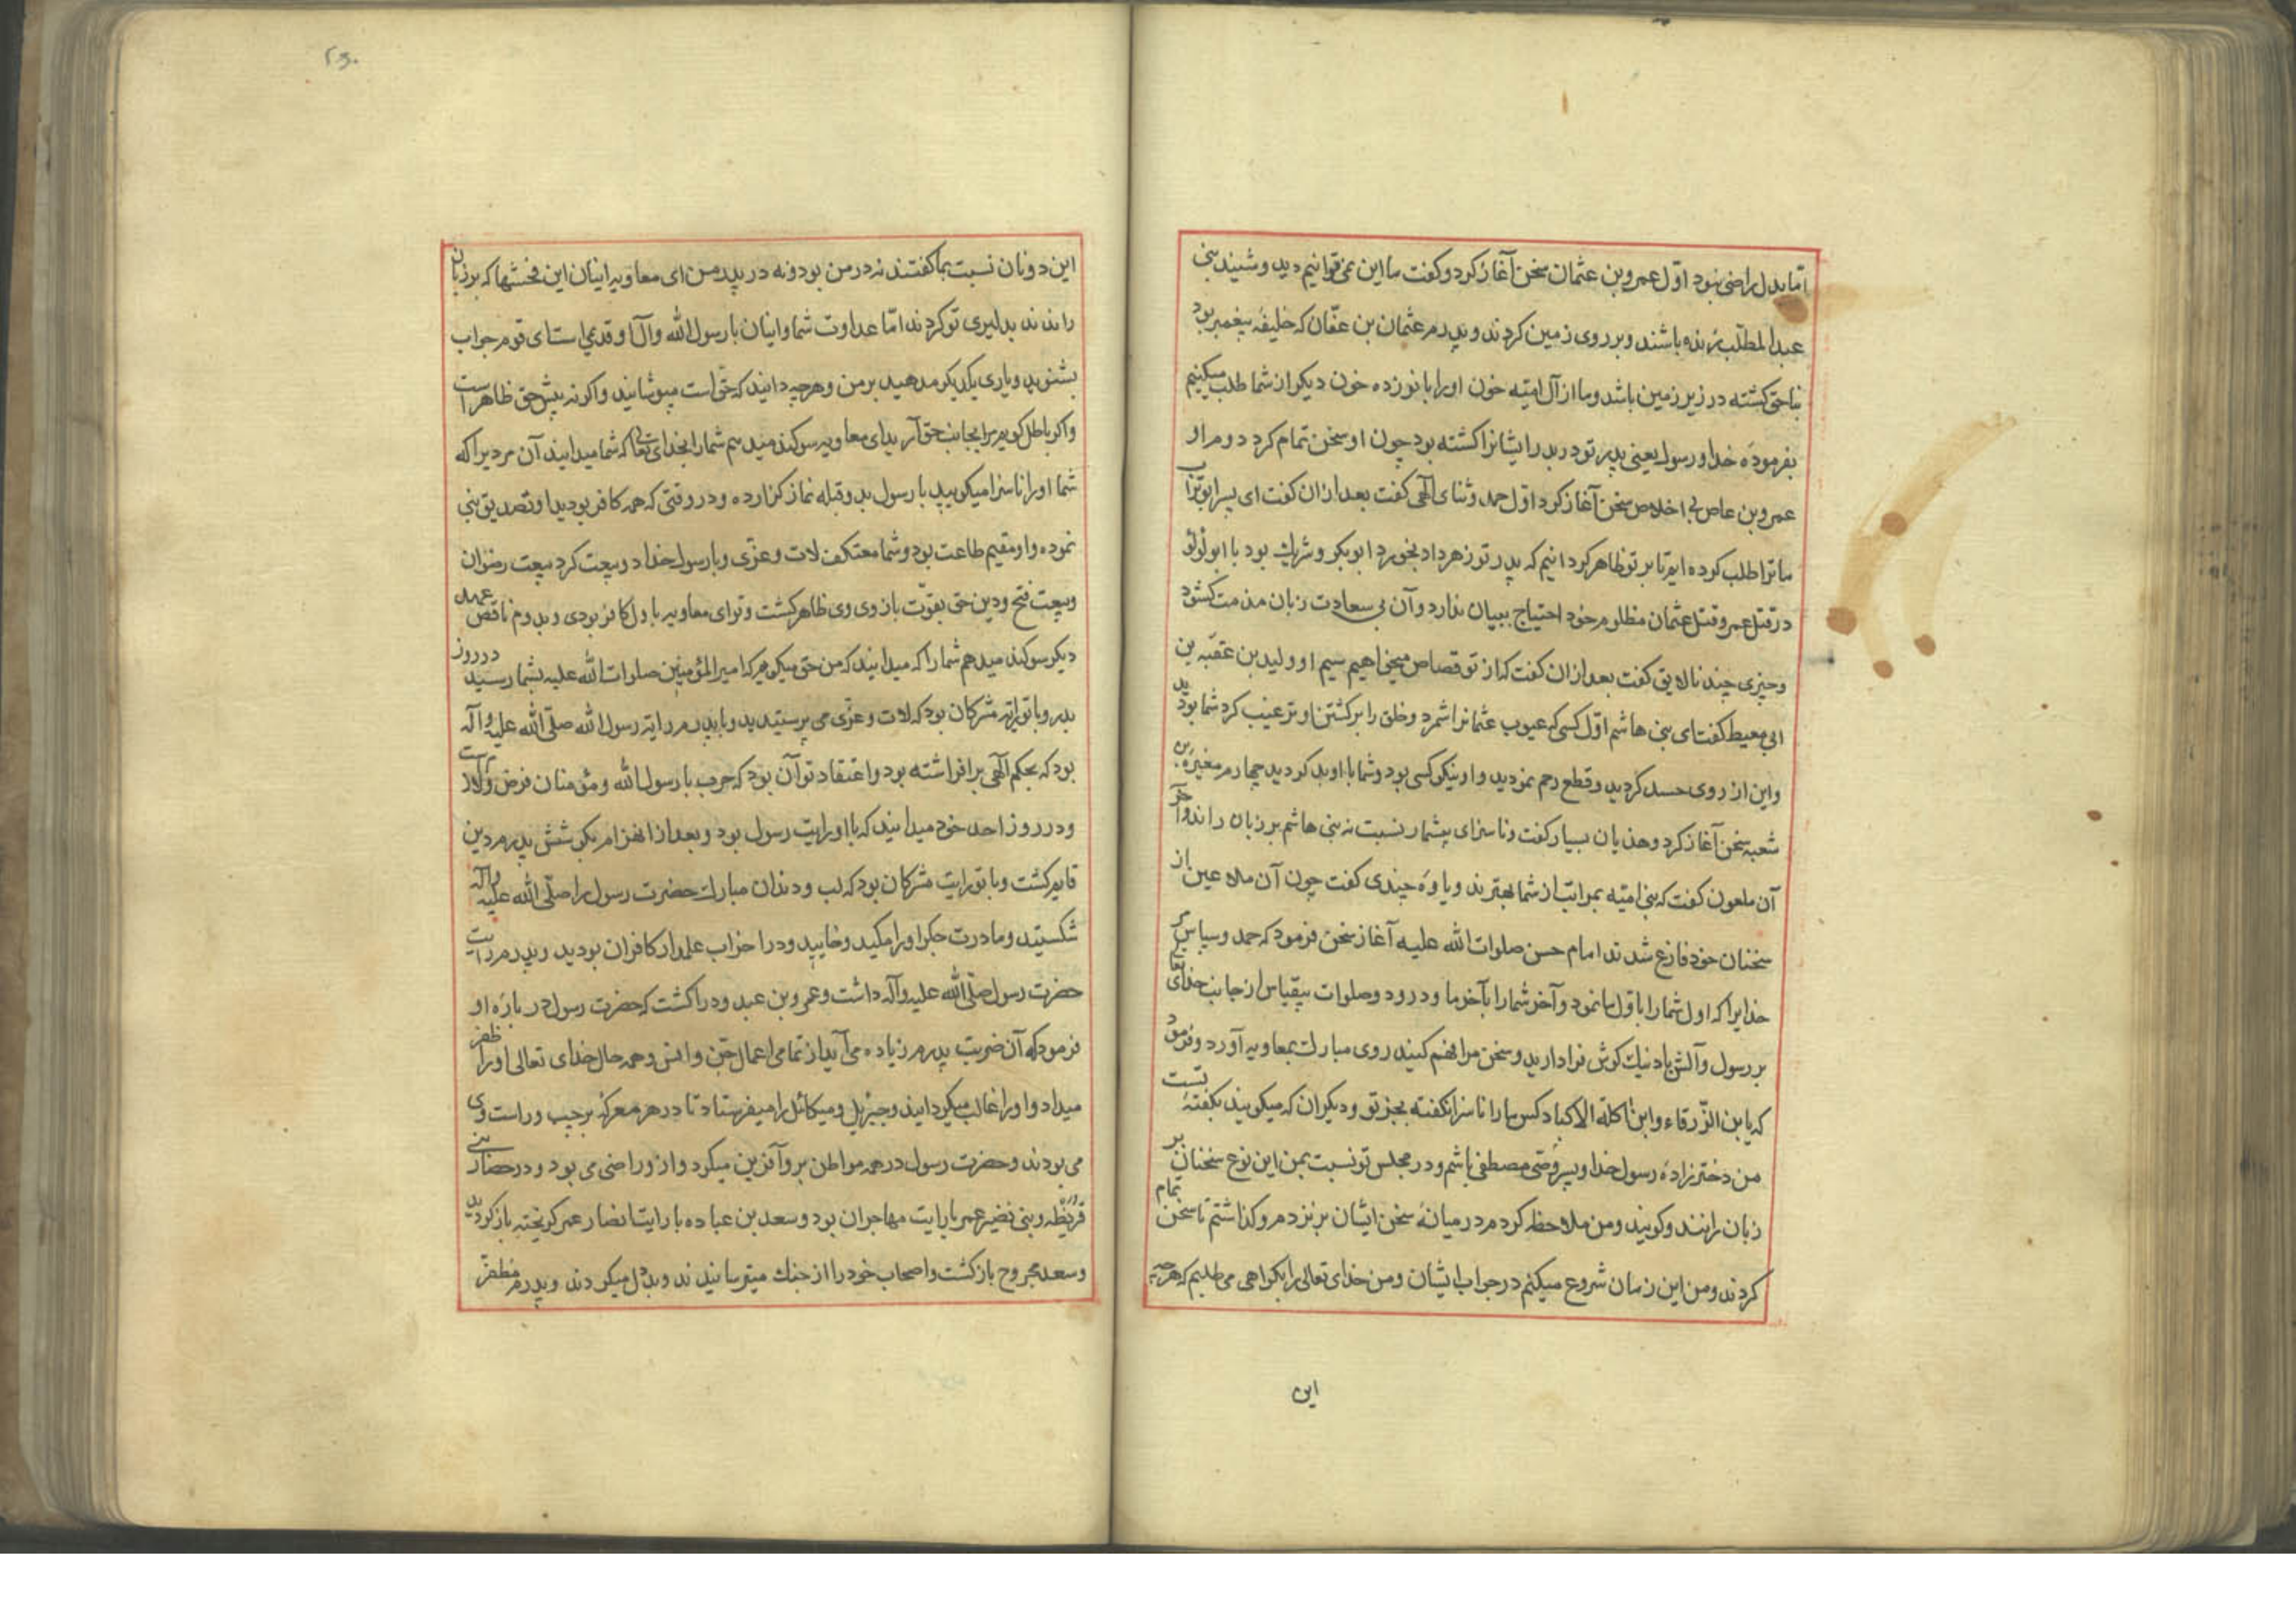 اما بدل راضی نبود اوّل عمرو بن عثمان سخن آغاز کرد و کفت ما این نمی توانیم دید و شنید بنی
عبدالمطلّب زنده باشند و بر روی زمین کردند و پدرم عثمان بن عفّان که خلیفهٔ پیغمبر بود
بناحق کشته در زیر زمین باشد و ما از آل امیّه خون او را با نوزده خون دیکر از شما طلب میکنیم
بفرمودهٔ خدا و رسول یعنی پدر تو در بدر ایشانرا کشته بود چون او سخن تمام کرد دوم او
عمرو بن عاص بی اخلاص سخن آغاز کرد اوّل حمد و ثنای الهی کفت بعد ازان کفت ای پسر ابوتراب
ما ترا طلب کرده ایم تا بر تو ظاهر کردانیم که پدر تو زهر داد بخورد ابوبکر و شریک بود با ابولؤلؤ
در قتل عمر و قتل عثمان مظلوم خود احتیاج ببیان ندارد و آن بی سعادت زبان مذمت کشود
و چیزی چند نالایق کفت بعد ازان کفت که از تو قصاص میخواهیم سیم او ولید بن عقبة بن
ابی معیط کفت ای بنی هاشم اوّل کسی که عیوب عثمانرا شمرد و خلق را بر کشتن او ترغیب کرد شما بودید
و این از روی حسد کردید و قطع رحم نمودید و او نیکو کسی بود و شما با او بد کردید چهارم مغیرة بن
شعبه سخن آغاز کرد و هذیان بسیار کفت و ناسزای بیشمار نسبت به بنی هاشم بر زبان راند و آخر
آن ملعون کفت که بنی امیّه بمراتب از شما بهترند و یاوهٔ چندی کفت چون آن ملاعین از
سخنان خود فارغ شدند امام حسن صلوات الله علیه آغاز سخن فرمود که حمد و سپاس مر
خدایرا که اول شما را باوّل ما نمود و آخر شما را بآخر ما و درود و صلوات بیقیاس از جانب خدای تعا
بر رسول و آلش باد نیک کوش فرا دارید و سخن مرا فهم کنید روی مبارک بمعاویه آورد و فرمود
که یا بن الزّرقاء و ابن آکلة الاکباد کس ما را ناسزا نکفته بجز تو و دیکران که میکویند بکفتهٔ تست
من دخترزادهٔ رسول خدا و پسر وصی مصطفی باشم و در مجلس تو نسبت بمن این نوع سخنان بر
زبان رانند و کویند و من ملاحظه کردم در میانهٔ سخن ایشان بر نزدم و کذاشتم تا سخن تمام
کردند و من این زمان شروع میکنم در جواب ایشان و من خدای تعالی را بکواهی می طلبم که هر چه
این
این دونان نسبت بما کفتند نه در من بود و نه در پدر من ای معاویه اینان این فحشها که بر زبان
راندند بدلیری تو کردند امّا عداوت شما و اینان با رسول الله و آل او قدیم است ای قوم جواب
بشنوید و یاری یکدیکر مدهید بر من و هر چه دانید که حق است مپوشانید و اکر نه پیش حق ظاهر است
و اکر باطل کویم مرا بجانب حق آرید ای معاویه سوکند میدهم شما را بخدای تعا که شما میدانید آن مردیرا که
شما او را ناسزا میکویید با رسول بدو قبله نماز کزارده و در وقتی که همه کافر بودید او تصدیق نبی
نموده و او مقیم طاعت بود و شما معتکف لات و عزّی و با رسول خدا دو بیعت کرد بیعت رضوان
و بیعت فتح و دین حق بقوّت بازوی وی ظاهر کشت و تو ای معاویه باول کافر بودی و بدوم ناقض عهد
دیکر سوکند میدهم شما را که میدانید که من حق میکویم که امیرالمؤمنین صلوات الله علیه بشما رسید در روز
بدر و با تو رایة مشرکان بود که لات و عزّی می پرستیدید و با پدرم رایة رسول الله صلّی الله علیه و آله
بود که بحکم الهی برافراشته بود و اعتقاد تو آن بود که حرب با رسول الله و مؤمنان فرض و لازمست
و در روز احد خود میدانید که با او رایت رسول بود و بعد از انهزام بکوشش پدرم دین
قایم کشت و با تو رایت مشرکان بود که لب و دندان مبارک حضرت رسول را صلّی الله علیه وآله
شکستید و مادرت جکر او را مکید و خایید و در احزاب علمدار کافران بودید و پدرم رایت
حضرت رسول صلّی الله علیه و آله داشت و عمرو بن عبد ود را کشت که حضرت رسول در بارهٔ او
فرمود که آن ضربت پدرم زیاده می آید از تمامی اعمال جن و انس و همه حال خدای تعالی او را ظفر
میداد و او را غالب میکردانید و جبرئیل و میکائل را میفرستاد تا در هر معرکه بر چپ و راست وی
می بودند و حضرت رسول در همه مواطن بر و آفرین میکرد و ازو راضی می بود و در حصار بنی
قریظه و بنی نضیر عمر با رایت مهاجران بود و سعد بن عباده با رایت انصار عمر کریخته باز کردید
و سعد مجروح باز کشت و اصحاب خود را از جنک میترسانیدند و بددل میکردند و پدرم مظفر